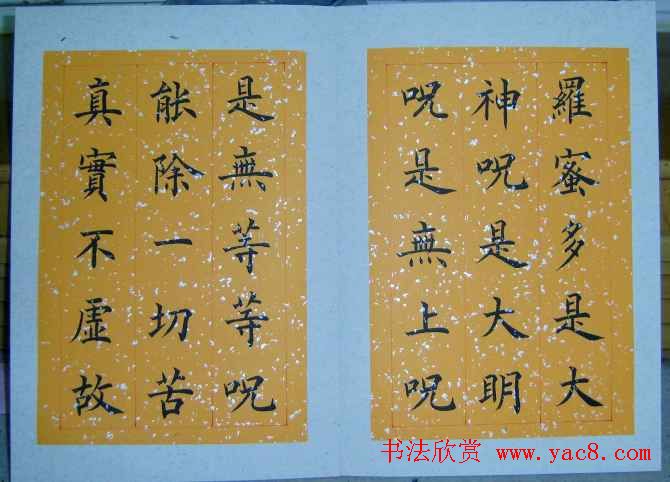 羅蜜多是大
神呪是大明
呪是無上呪
是無等等呪
能除一切苦
真實不虛故
书法欣赏 www.yac8.com